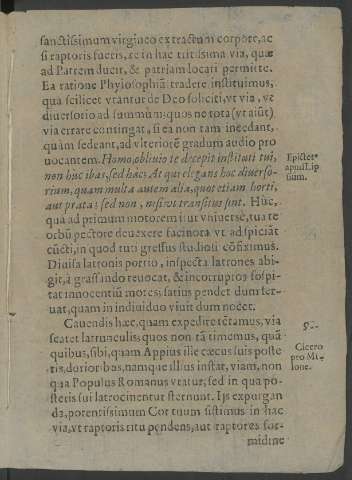 sanctissimum virgineo extractum corpore, ac
si raptoris fueris, te in hac tritissima via, quæ
ad Patrem ducit, & patriam locari permitte.
Ea ratione Phylosophiã tradere instituimus,
qua scilicet vtantur de Deo soliciti, vt via, vt
diuersorio ad summum: quos ne tota (vt aiũt)
via errare contingat, si ea non tam incedant,
quàm sedeant, ad vlteriorẽ gradum audio pro
uocantem. Homo, oblitio te decepit instituti tui,
non huc ibas, sed hac: At qui elegans hoc diuerso-
rium, quam multa autem alia, quot etiam horti,
aut prata: sed non, nisi vt transitus sunt. Huc,
qua ad primum motorem itur vniuersè, tua te
orbũ pectore deuexere facinora vt adspiciãt
cũcti, in quod tuti gressus studiosi cõfiximus.
Diuisa latronis portio, inspecta latrones abi-
git, à grassando reuocat, & incorruptos sospi-
tat innocentiũ motes; satius pendet dum ser-
uat, quam in indiuiduo viuit dum nocet.
Cauendis hæc, quam expedire tẽtamus, via
scatet latrunculis; quos non tã timemus, quã
quibus, sibi, quam Appius ille cæcus suis poste
ris, dorioribus, namque illius instat, viam, non
qua Populus Romanus vtatur, sed in qua po-
steris sui latrocinentur sternunt. Ijs expurgan
da, potentissimum Cor tuum sistimus in hac
via, vt raptoris ritu pendens, aut raptores for-
midine
Epictet9
apus Lip
sium.
52.
Cicero
pro Mi-
lone.